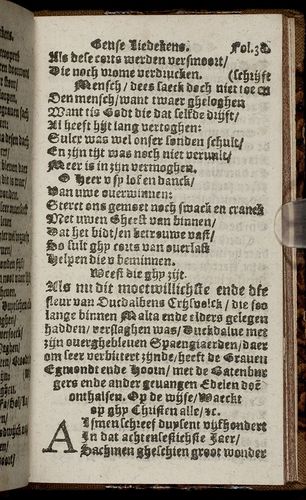 Geuse Liedekens. Fol.38
Als dese corts werden versmoort/
Die noch vrome verdrucken. (schrijft
Mensch / dees saeck doch niet toe en
Den mensch/want twaer gheloghen
Want tis Godt die dat selfde drijft/
Al heeft hijt lang vertoghen:
Sulcx was wel onser sonden schult/
En zijn tijt was noch niet vervult/
Meer is in zijn vermoghen.
O Heer v sy lof en danck/
Van uwe overwinnen:
Sterct ons ghemoet noch swack en cranck
Met uwen Gheest van binnen/
Dat het bidt/en betrouwe vast/
So sult ghy corts van overlast
Helpen die v beminnen.
Weest die ghy zijt.
Als nu dit moetwillichste ende die
fleur van Ducdalbens Crijsvolck / die soo
lange binnen Malta ende elders gelegen
hadden/ verslaghen was/ Duckdalve met
zijn overghebleven Spaengiaerden/daer
om seer verbittert zijnde/heeft de Graven
Egmondt ende Hoorn/ met de Batenbur
gers ende ander gevangen Edelen doen
onthalsen. Op de wijse/ Waeckt
op ghy Christen alle/ &c.
Alsmen schreef duysent vijfhondert
In dat achtensestichste Jaer/
Sachmen gheschien groot wonder